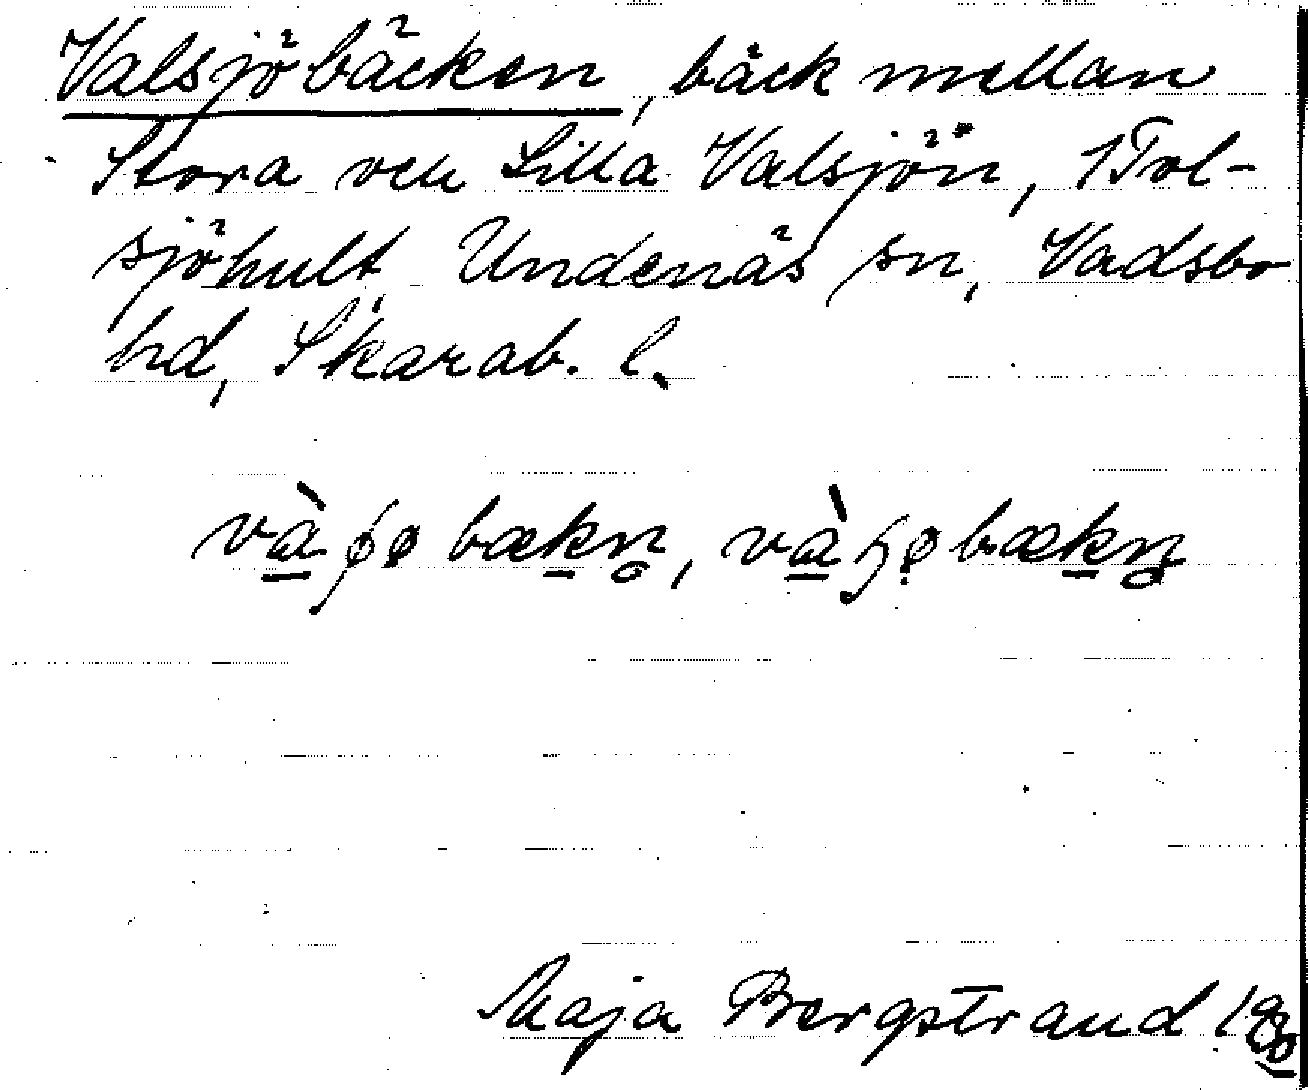 Valsjöbäcken, bäck mellan
Stora och Lilla Valsjön, 1 Tol-
sjöhult, Undenäs sn, Vadsbo
hd, Skarab. l.
Maja Bergstrand